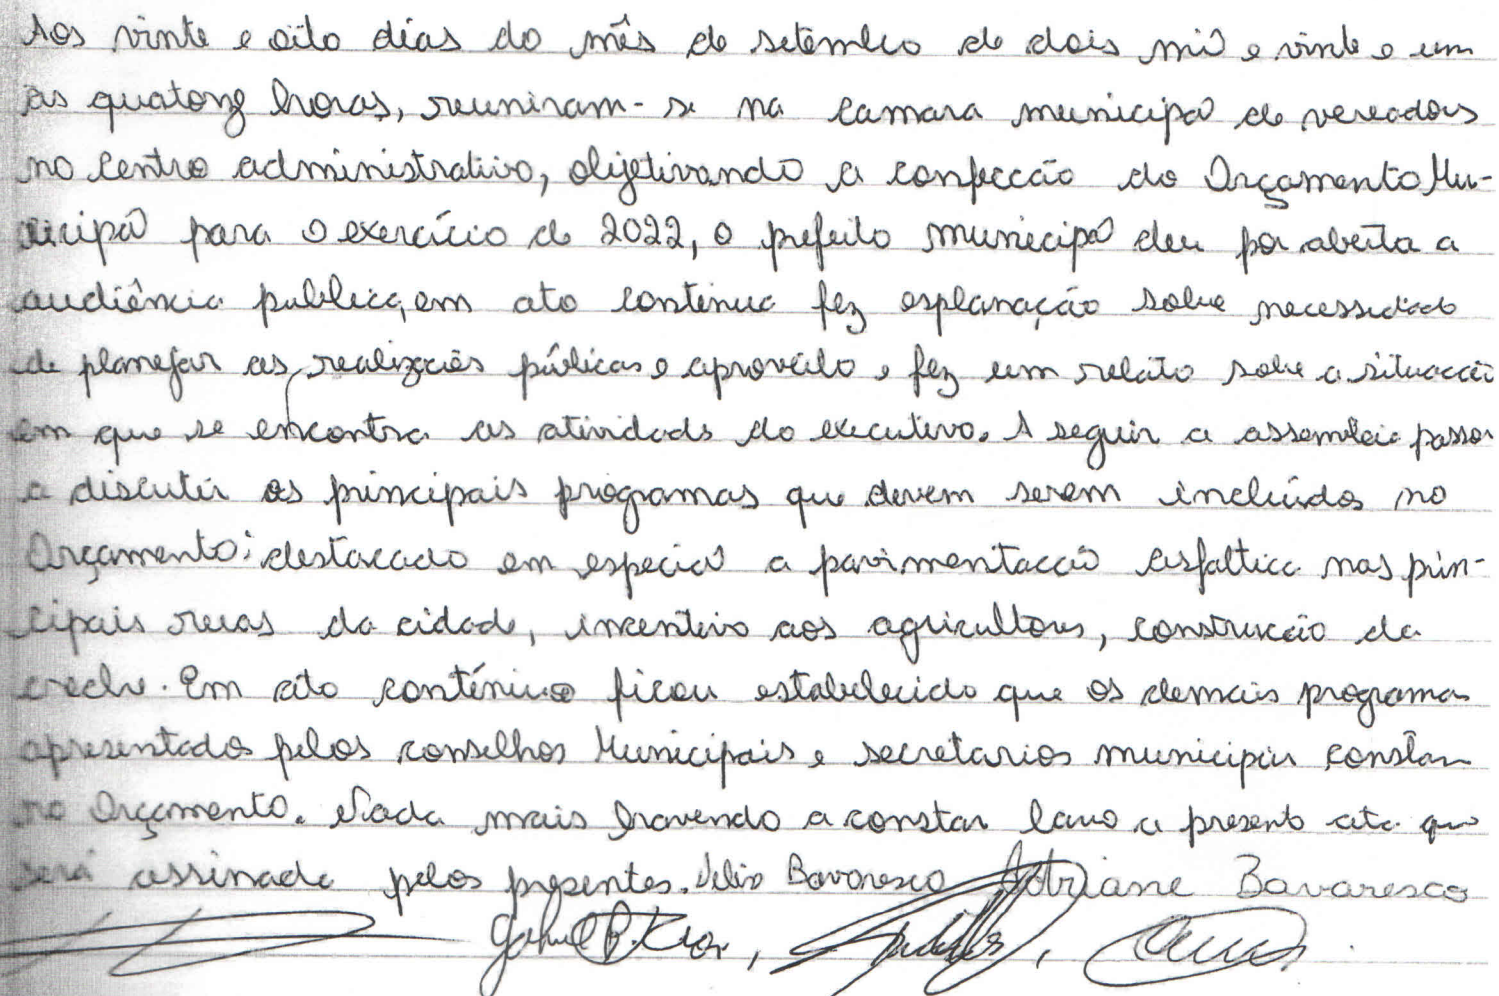 Aos vinte e oito dias do mês de setembro de dois mil e vinte e um
as quatorze horas, reuniram-se na camara municipal de vereadores
no Centro administrativo, objetivando a confecção do Orçamento Mu-
nicipal para o exercício de 2022, o prefeito municipal deu por aberta a
audiência publica, em ato continuo fez esplanação sobre necessidade
de planejar as realizações públicas e aproveito e fez um relato sobre a situação
em que se encontra as atividades do executivo. A seguir a assembleia passou
a discutir os principais programas que devem serem incluídos no
Orçamento: destacado em especial a pavimentação asfaltica nas prin-
cipais ruas da cidade, incentivo aos agricultores, construção da
creche. Em ato contínuo ficou estabelecido que os demais programas
apresentados pelos conselhos Municipais e secretarios municipais constam
no Orçamento. Nada mais havendo a constar lavo a presente ata que
será assinada pelos presentes. Bavaresco Adriane Bavaresco